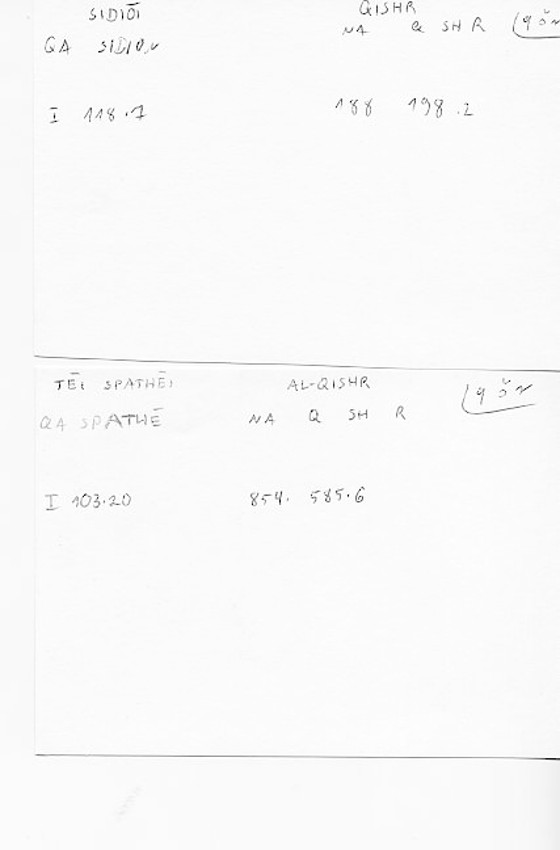 SIDIŌI QISHR
QA SIDION NA Q SH R
I 118.7 188 198.2
TĒI SPATHĒI AL-QISHR
QA SPATHĒ NA Q SH R
I 103.20 854. 585.6